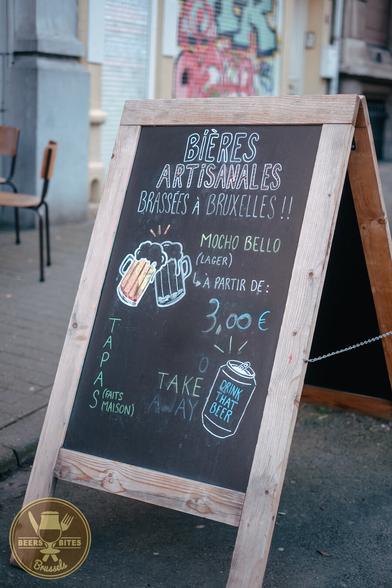 BIÈRES
ARTISANALES
BRASSÉES À BRUXELLES !!
MOCHO BELLO
(LAGER)
↳ À PARTIR DE:
3,00 €
TAPAS
(FAITS
MAISON)
TAKE
AWAY
DRINK
THAT
BEER
BEERS BITES
Brussels